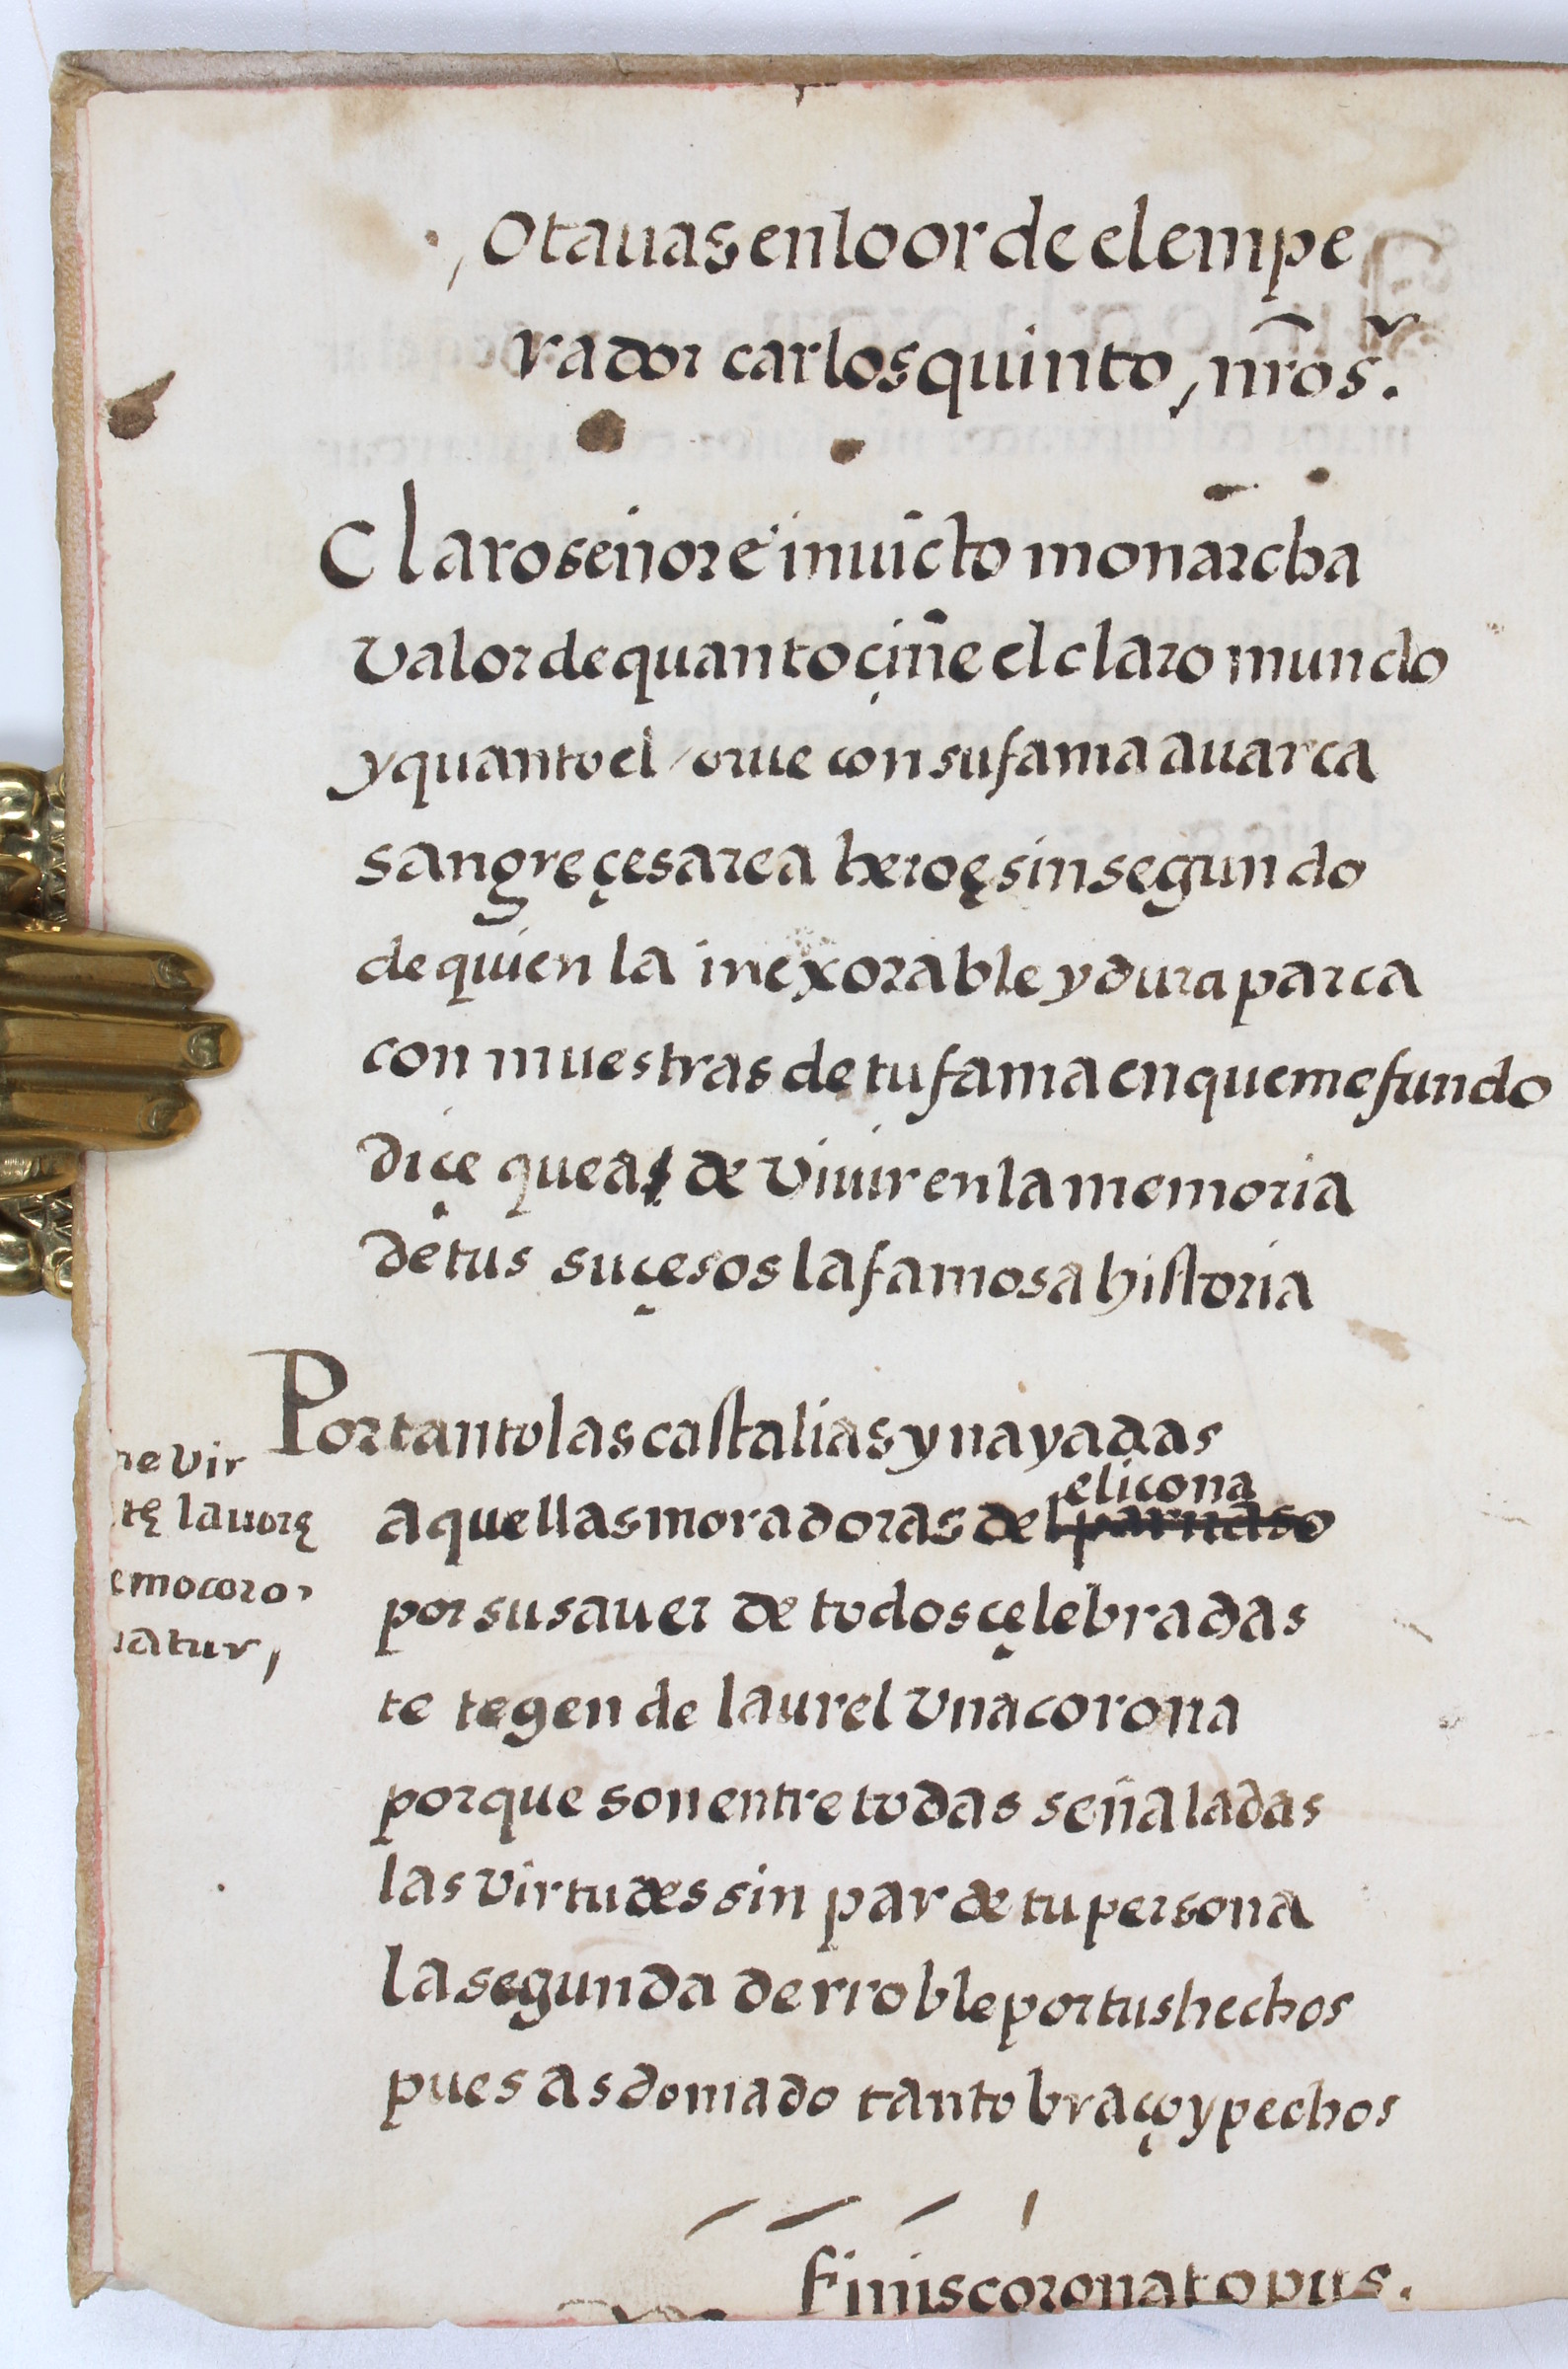 Otauas en loor de el empe
rador carlos quinto, nr̃o sr.
Claro señor e inuicto monarcha
valor de quanto çiñe el claro mundo
y quanto el orue con su fama auarca
sangre çesarea heroe sin segundo
de quien la inexorable y dura parca
con muestras de tu fama en que me fundo
diçe que as de viuir en la memoria
de tus suçesos la famosa historia
Por tanto las castalias y nayadas
elicona
aquellas moradoras del parnaso
por su sauer de todos çelebradas
te tegen de laurel vna corona
porque son entre todas señaladas
las virtudes sin par de tu persona
la segunda de rroble por tus hechos
pues as domado tanto braço y pechos
finis coronat opus.
ne vir
tę lauorę
emo coro
natur,